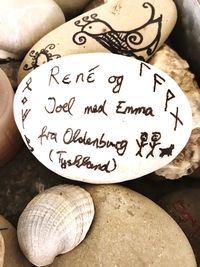 René og
Joel med Emma
fra Oldenburg
(Tyskland)